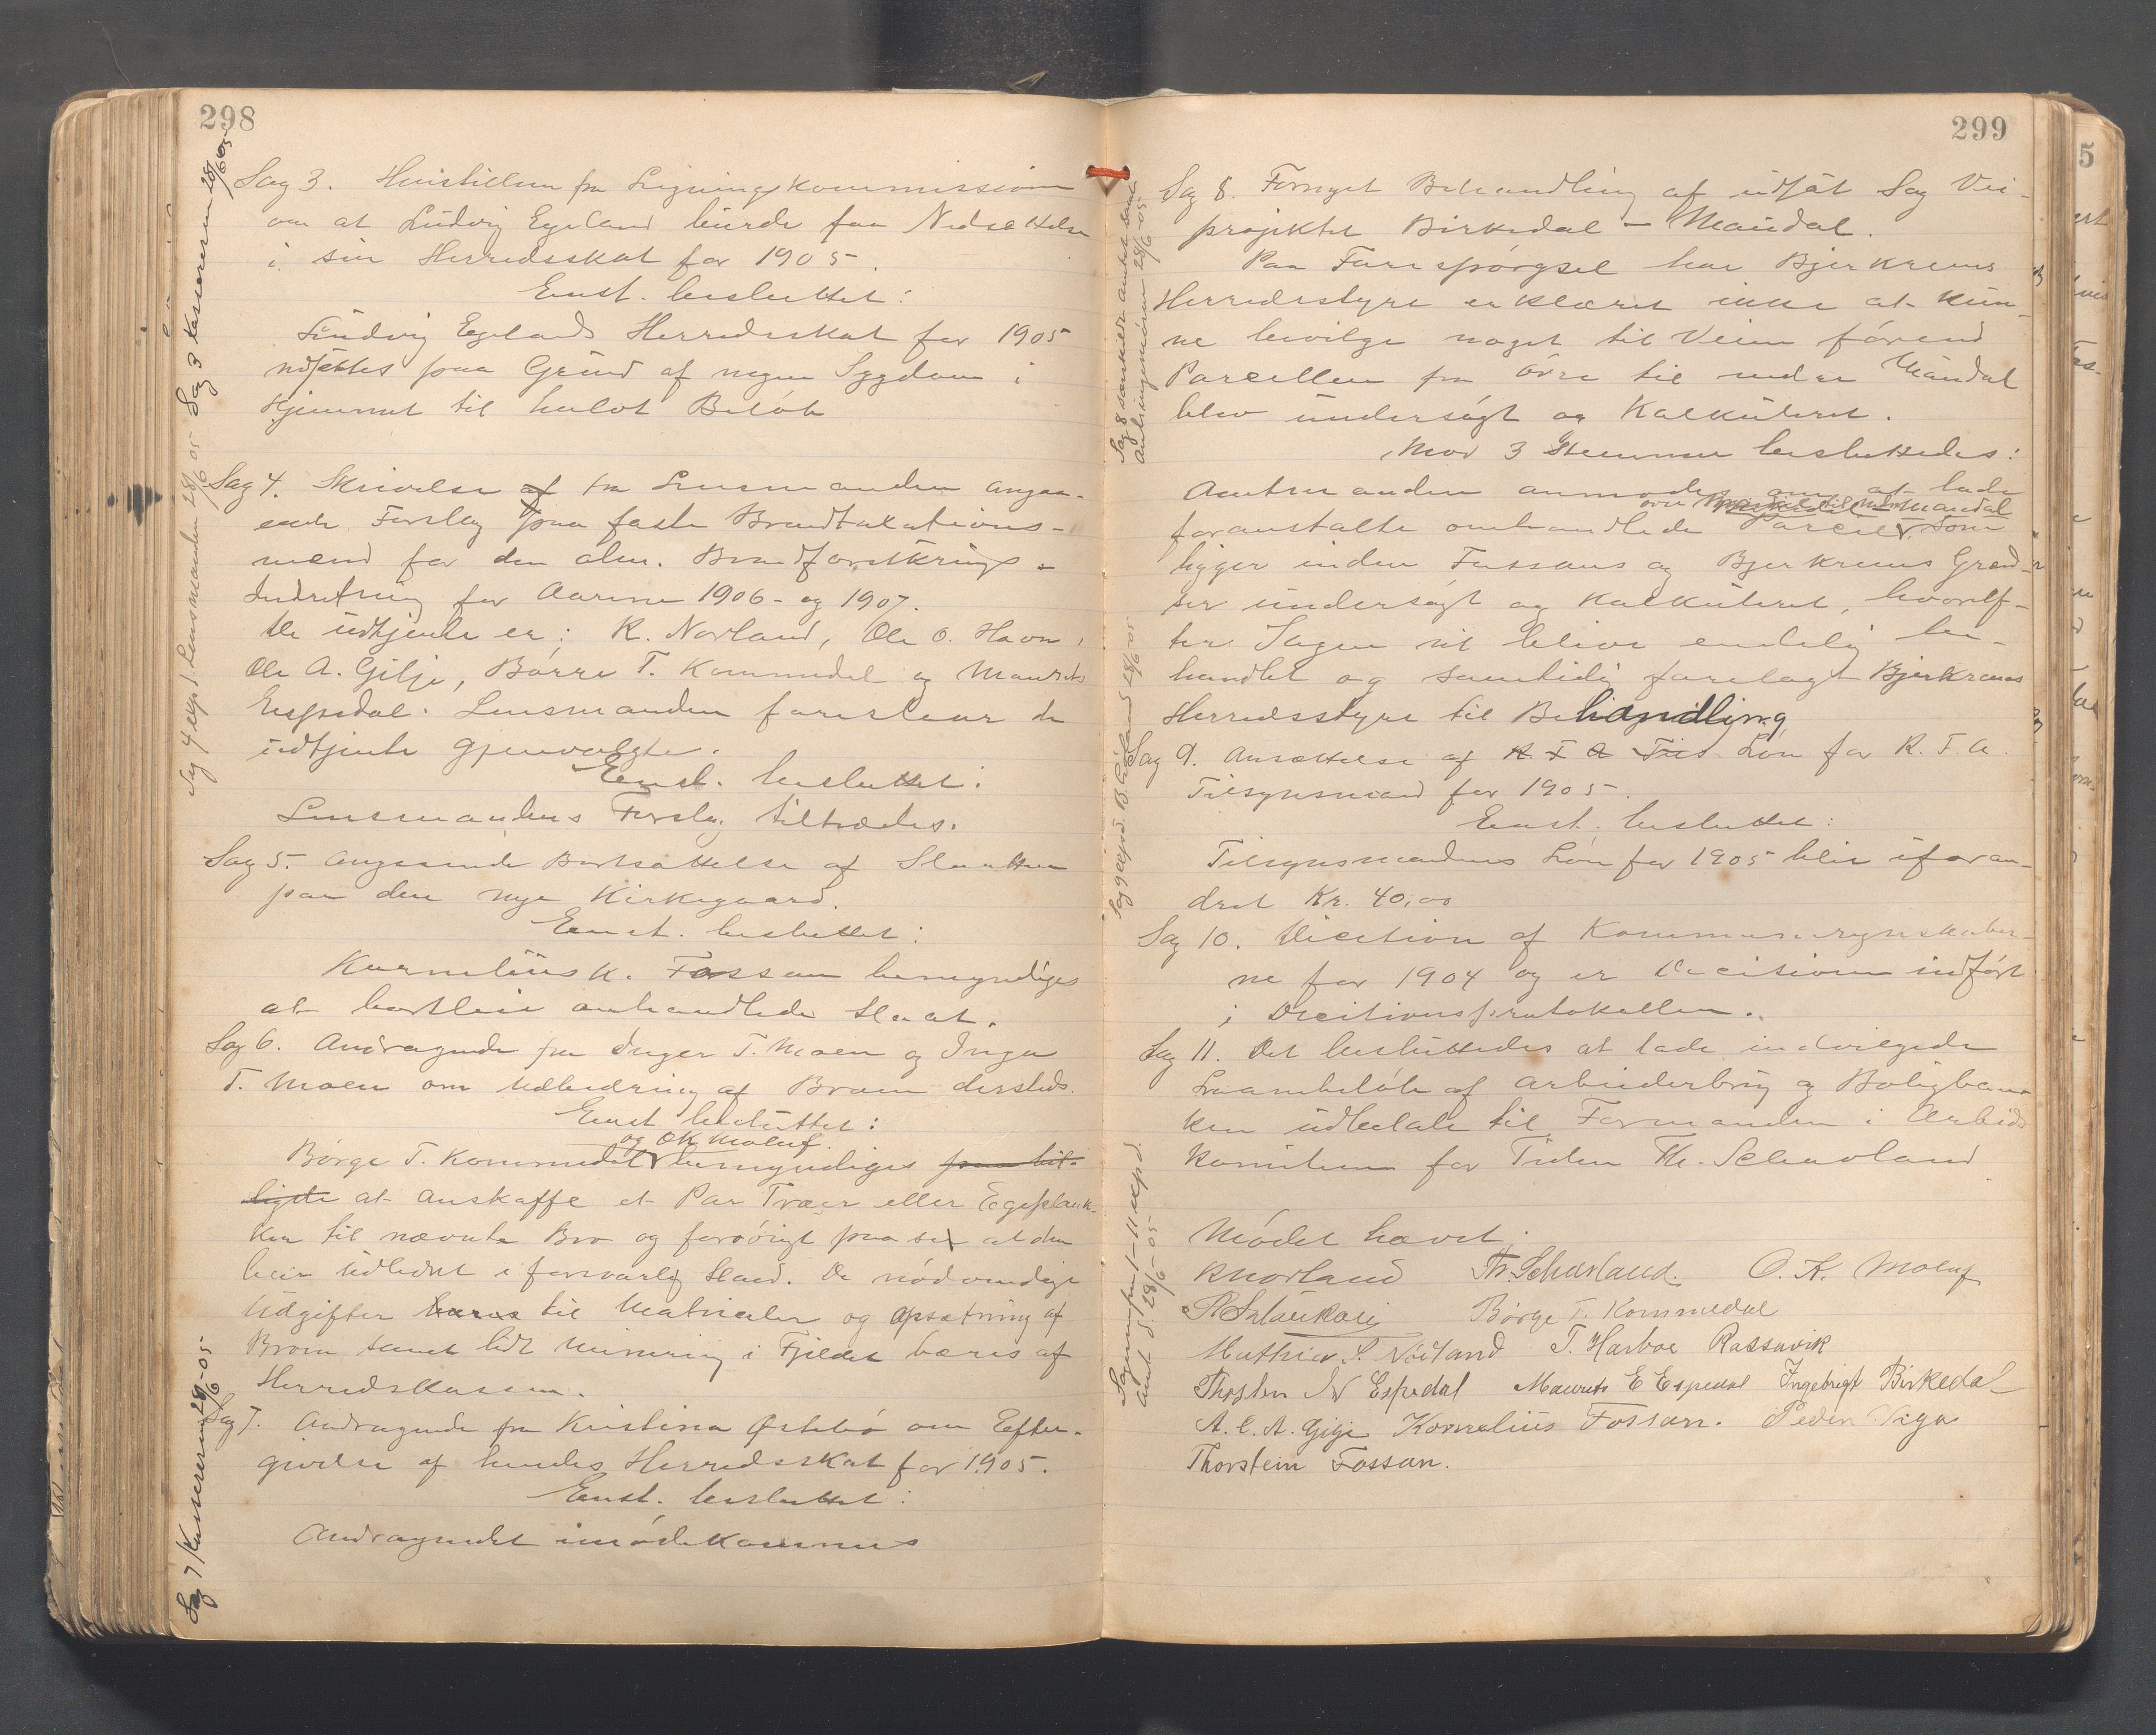 298
Sag 3. Henstillen fra Ligningskommissionen
om at Ludvig Egeland burde faa Nedsættelse
i sin Herredsskat for 1905.
Enst. besluttet:
Ludvig Egelands Herredsskat for 1905
nedsættes paa Grund af megen Sygdom i
Hjemmet til halvt Beløb
Sag 4. Skrivelse af fra Lensmanden angaa-
ende Forslag paa faste Brandtakations-
mænd for den alm. Brandforsikrings-
Indretning for Aarene 1906- og 1907.
De udtjente er: K. Norland, Ole O. Havn,
Ole A. Gilje, Børre T. Kommedal og Maurits
Espedal. Lensmanden foreslaar de
udtjente gjenvalgte.
Enst. besluttet:
Lensmandens Forslag tiltrædes.
Sag 5. Angaaende Bortsættelse af Slaatten
paa den nye Kirkegaard.
Enst. besluttet:
Kornelius K. Fossan bemyndiges
at bortleie omhandlede Slaat.
Sag 6. Andragende fra Inger T. Moen og Inga
T. Moen om Udbedring af Broen dersteds.
Enst besluttet:
og O K Moluf.
Børge T. Kommedal bemyndiges paa bil-
ligste at anskaffe et Par Trær eller Egeplank-
ker til nævnte Bro og forøvrigt paa se at den
bliir udbedret i forsvarlig Stand. De nødvendige
Udgifter bæres til Materialer og opsætning af
Broen samt lidt Minering i Fjeldet bæres af
Herredskassen.
Sag 7. Andragende fra Kristina Østebø om Efter-
givelse af hendes Herredsskat for 1905.
Enst. besluttet:
Andragendet imødekommes
Sag 3 Kassereren 28/6 05-
Sag 4 expd. Lensmanden 28/6 05
Sag 7 Kassereren 28/6-05-
299
Sag 8. Fornyet Behandling af udsat Sag Vei-
projektet Birkedal – Maudal.
Paa Forespørgsel har Bjerkreims
Herredsstyre erklæret ikke at kun-
ne bevilge noget til Veien førend
Parcellen fra Øvre til nedre Maudal
blev undersøgt og Kalkuleret.
Mod 3 Stemmer besluttedes:
Amtmanden anmodes om at lade
øvre Maudal til nedre Maudal
foranstalte omhandlede Parcel som
ligger inden Fossans og Bjerkreims Græd-
ser undersøgt og Kalkuleret, hvoref-
ter Sagen vil blive endelig be-
handlet og samtidig forelagt Bjerkreims
Herredsstyre til Behandling
Sag 9. Ansættelse af R F A Løn for R. F. A.
Tilsynsmand for 1905-.
Enst. besluttet:
Tilsynsmandens Løn for 1905 blir uforan-
dret Kr. 40,00
Sag 10. Decition af Kommuneregnskaber-
ne for 1904 og er Decitionen indført
i Decitionsprotokollen.
Sag 11. Det besluttedes at lade indvilgede
Laanebeløb af Arbeiderbrug og Boligban-
ken udbetale til Formanden i Arbeids
komiteen for Tiden Th. Schavland
Mødet hævet.
K Norland Th. Schavland. O. K. Moluf
Børge T. Kommedal
Mathias S. Nöiland T. Harboe Rassavik
Thosten N Espedal Maurits E Espedal Ingebrigt Birkedal
A. C. A. Gilje Kornelius Fossan. Peder Viga
Thorstein Fossan.
Sag 8 særskildt amtet samt
Anbringsmanden 28/6-05-
Sag 9 expd. 28/6-05
Sagerne 1–11 expd.
Amt d. 28/6-05-
5